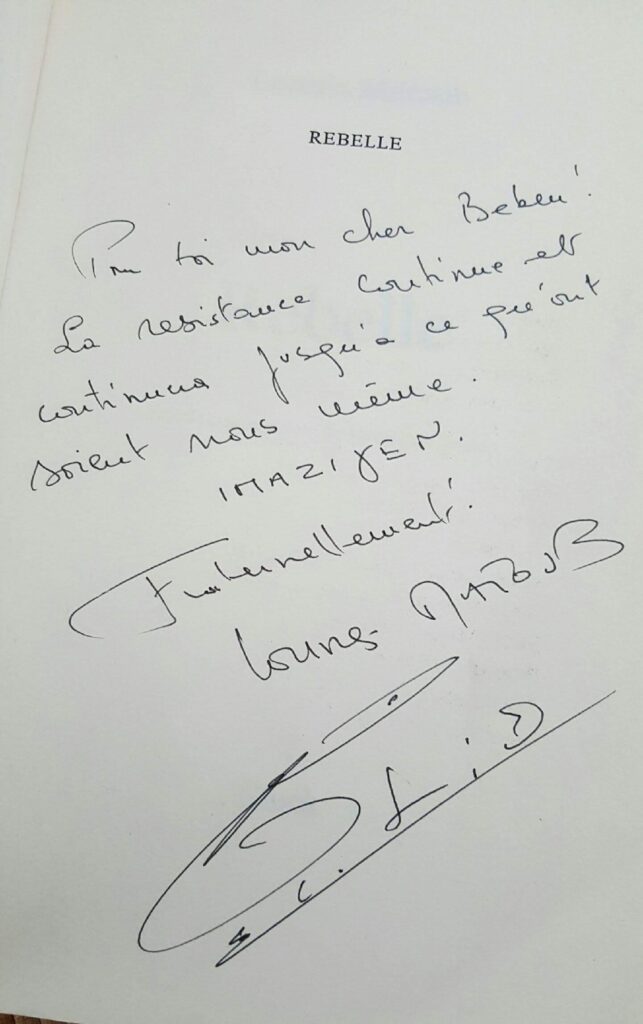 REBELLE
Pour toi mon cher Beben!
La resistance continue et
continuera jusqu'à ce qu'ont
soient nous même.
IMAZIƔEN.
Fraternellement!
Lounes MATOUB